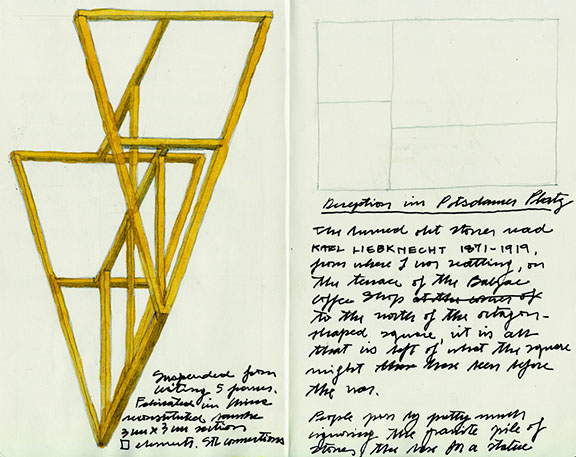 Suspended form
uniting 5 panes.
Fabricated in
reconstituted
3cm x 3cm section
elements. Stl connections
Deception in Potsdamer Platz
The turned out stones read
KARL LIEBKNECHT 1871-1919,
from where I was seatting, on
the terrace of the Balzac
Coffee Shop at the corner of
to the north of the octagon-
shaped square, it is all
that is left of what the square
might have been before
the war.
People pass by pretty much
ignoring this granite pile of
stones, the base for a statue